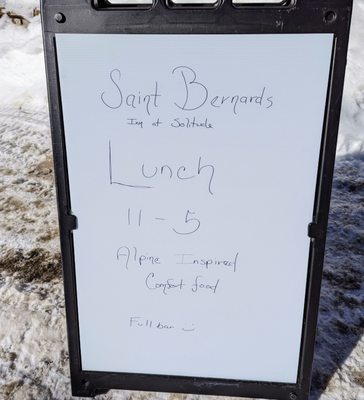 Saint Bernards
Inn at Solitude
Lunch
11 - 5
Alpine Inspired
Comfort food
Full bar :)